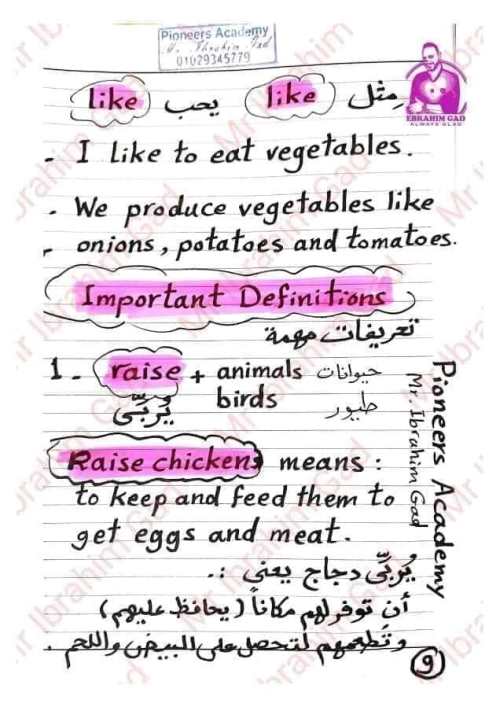 Pioneers Academy
Mr. Ibrahim Gad
01029345779
EBRAHIM GAD
ALWAYS GLAD
like يحب like مِثل
- I like to eat vegetables.
- We produce vegetables like
- onions, potatoes and tomatoes.
Important Definitions
تعريفات مهمة
1 - raise + animals حيوانات
يُربِّى birds طيور
Raise chickens means :
to keep and feed them to
get eggs and meat.
يُربِّى دجاج يعنى :.
أن توفر لهم مكاناً (يحافظ عليهم)
وتُطعمهم لتحصل على البيض واللحم.
Pioneers Academy
Mr. Ibrahim Gad
9